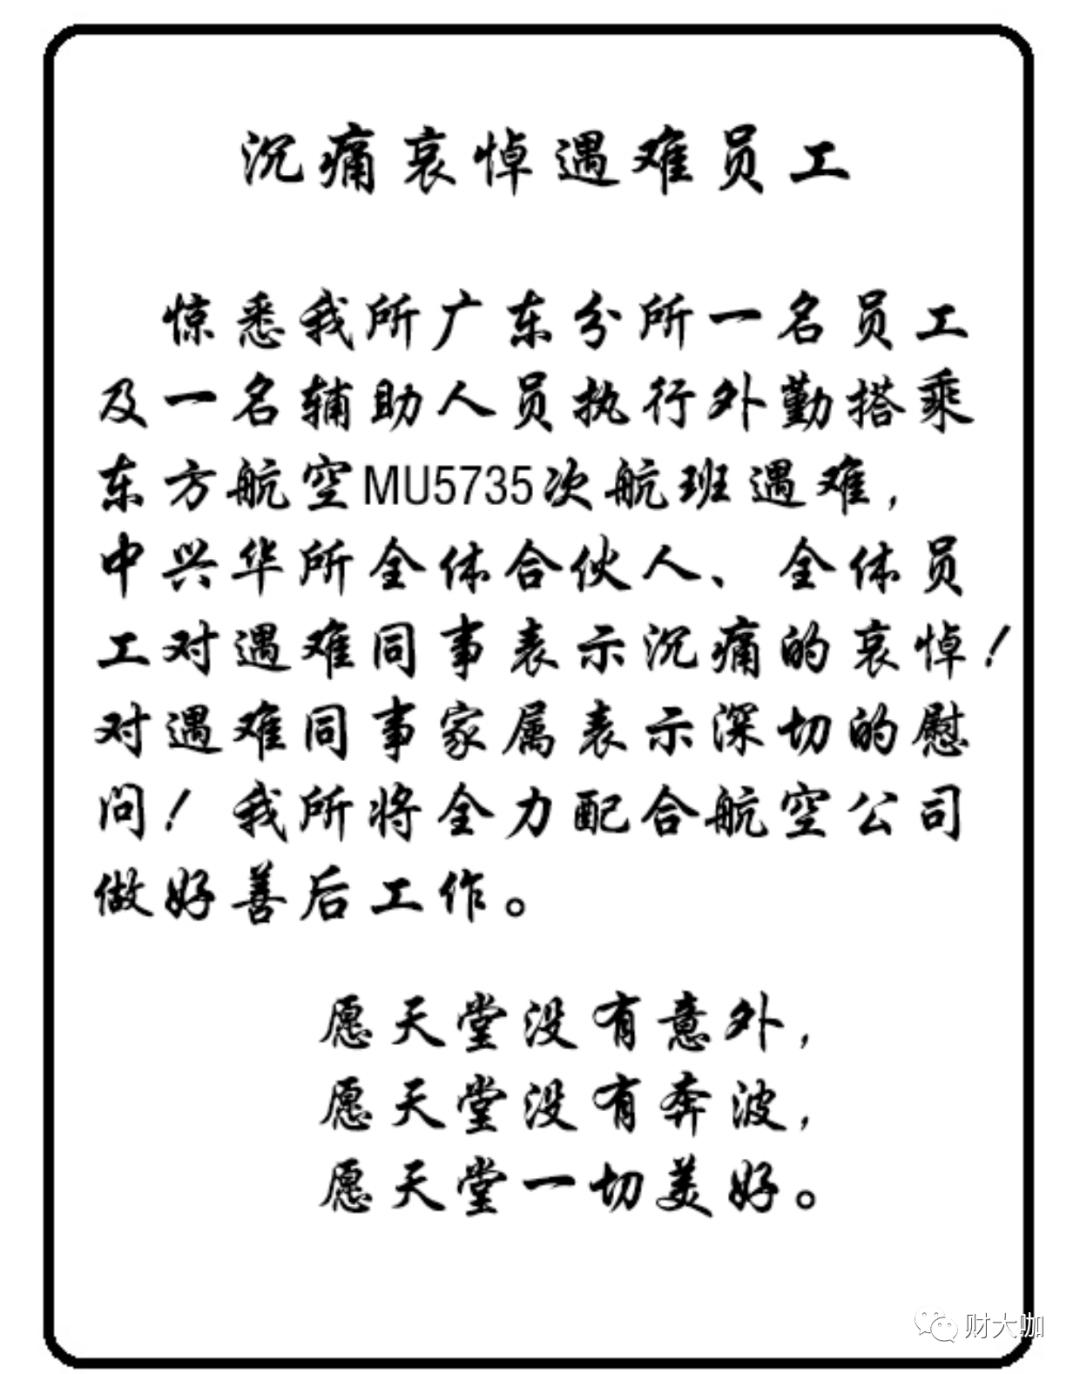 沉痛哀悼遇难员工
惊悉我所广东分所一名员工
及一名辅助人员执行外勤搭乘
东方航空MU5735次航班遇难，
中兴华所全体合伙人、全体员
工对遇难同事表示沉痛的哀悼！
对遇难同事家属表示深切的慰
问！我所将全力配合航空公司
做好善后工作。
愿天堂没有意外，
愿天堂没有奔波，
愿天堂一切美好。
财大咖